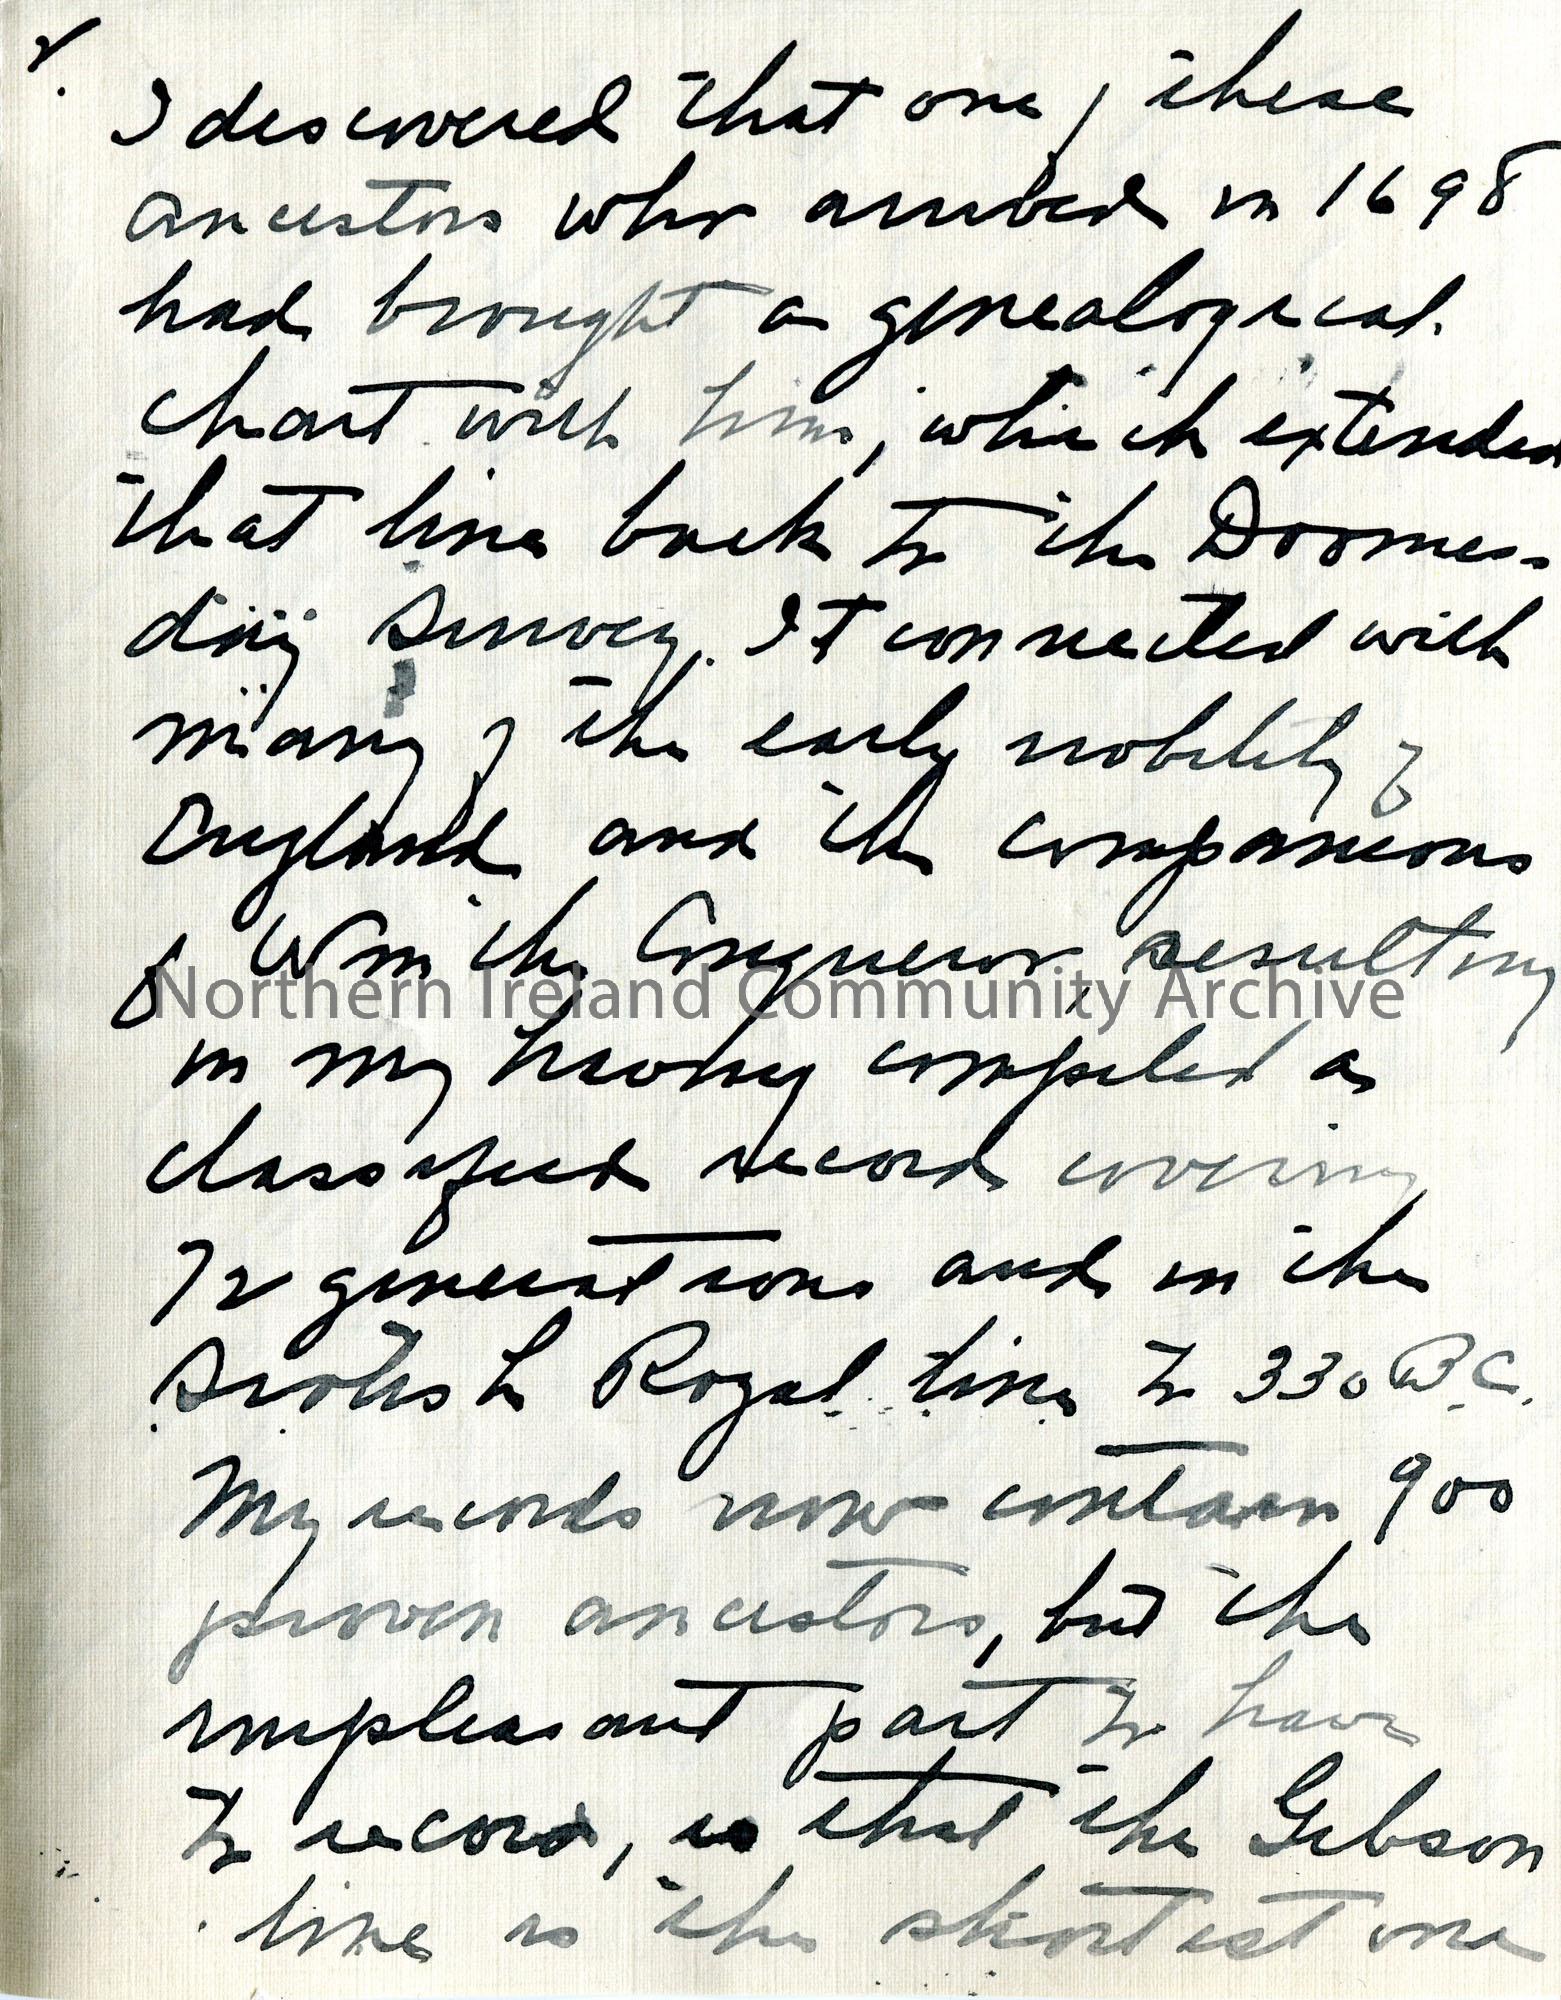 2.
I discovered that one of these
ancestors who arrived in 1698
had brought a genealogical
chart with him, which extended
that line back to the Doomes-
day Survey. It connected with
many of the early nobility of
England and the companions
of Wm the Conqueror, resulting
Northern Ireland Community Archive
in my having compiled a
classified record covering
72 generations and in the
Scotish Royal line to 330 B.C.
My records now contain 900
proven ancestors, but the
unpleasant part to have
to record, is that the Gibson
line is the shortest one